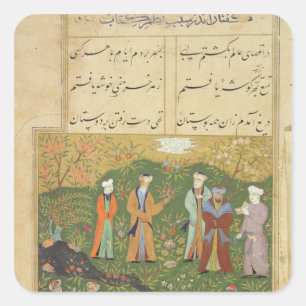 گفتار اندر سبب نظم کتاب
در اقصای عالم بگشتم بسی بسر بردم ایام با هر کسی
تمتع بهر گوشه یافتم ز هر خرمنی خوشه یافتم
دریغ آمدم زان همه بوستان تهی دست رفتن بر دوستان